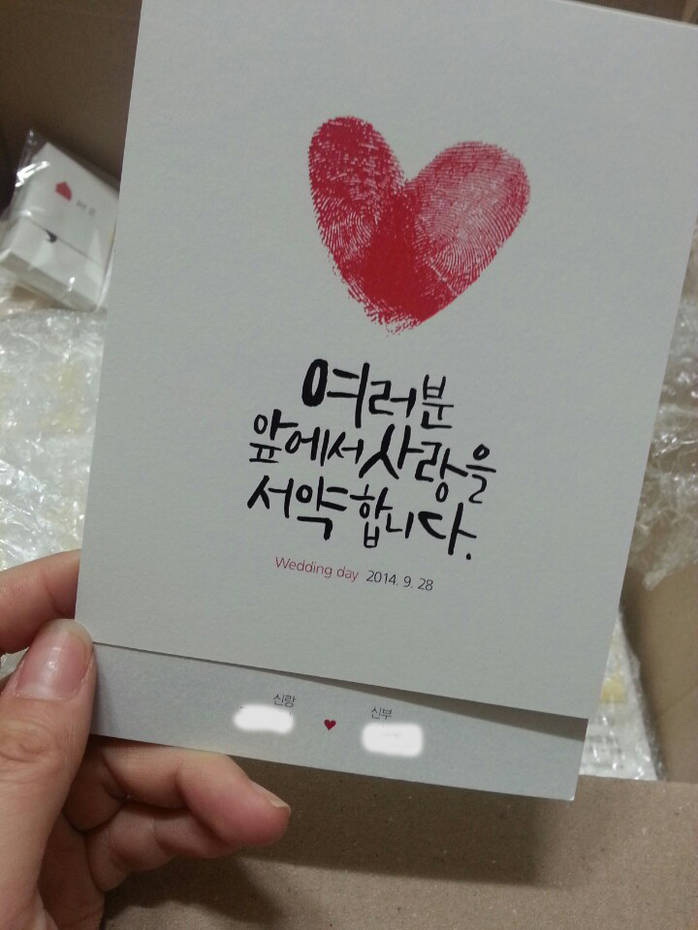 여러분
앞에서 사랑을
서약합니다.
Wedding day 2014. 9. 28
신랑 신부